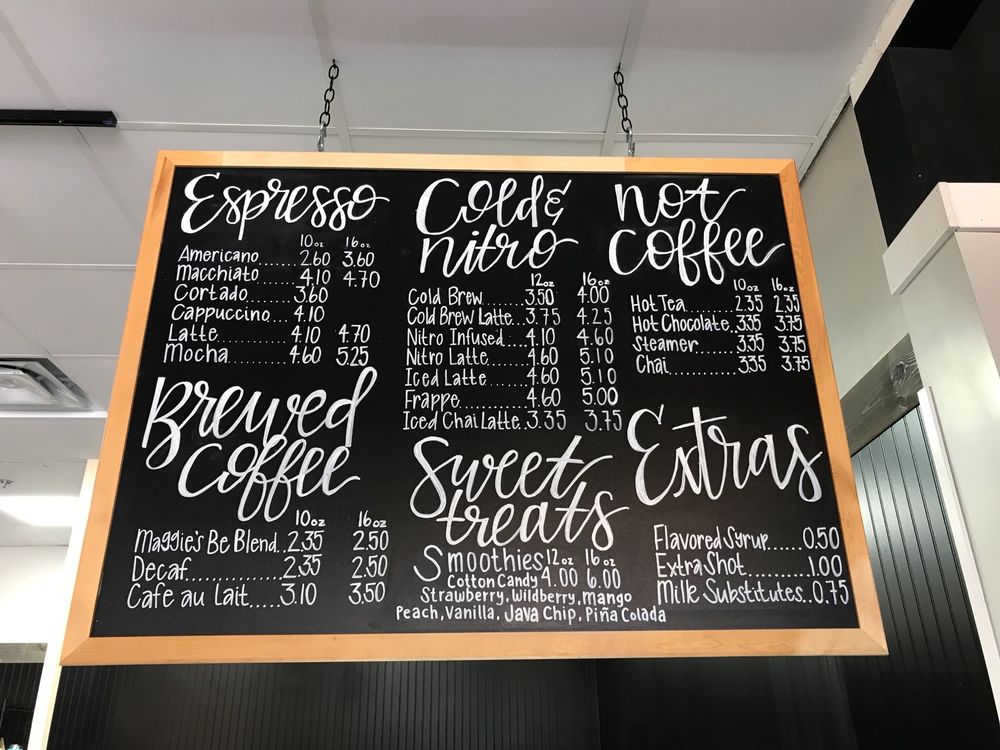 Espresso
10oz 16oz
Americano......2.60 3.60
Macchiato 4.10 4.70
Cortado........3.60
Cappuccino...4.10
Latte 4.10 4.70
Mocha 4.60 5.25
Brewed
Coffee
10oz 16oz
Maggie's Be Blend..2.35 2.50
Decaf..............2.35 2.50
Cafe au Lait.....3.10 3.50
Cold &
nitro
12oz 16oz
Cold Brew.......3.50 4.00
Cold Brew Latte..3.75 4.25
Nitro Infused...4.10 4.60
Nitro Latte......4.60 5.10
Iced Latte.......4.60 5.10
Frappe...........4.60 5.00
Iced Chai Latte..3.35 3.75
Sweet
treats
Smoothies 12oz 16oz
Cotton Candy 4.00 6.00
Strawberry, Wildberry, Mango
Peach, Vanilla, Java Chip, Piña Colada
not
coffee
10oz 16oz
Hot Tea..........2.35 2.35
Hot Chocolate..3.35 3.75
Steamer........3.35 3.75
Chai.............3.35 3.75
Extras
Flavored Syrup......0.50
Extra Shot..........1.00
Milk Substitutes..0.75